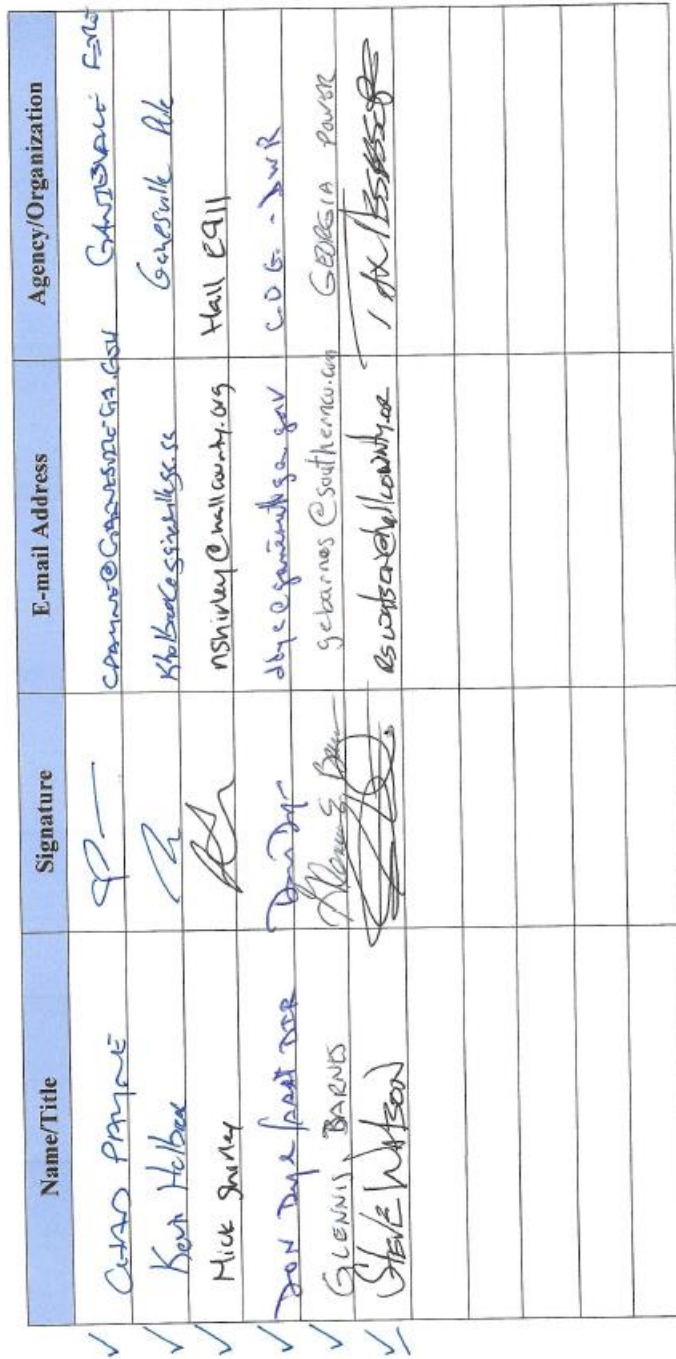 Name/Title Signature E-mail Address Agency/Organization
CHAD PAYNE CPAYNE@GAINESVILLEGA.GOV GAINESVILLE FIRE
Kevin Holbrook Gainesville
Mick Shirley nshirley@hallcounty.org Hall E911
DON Dye / Asst DIR C.O.G. - DWR
GLENNIS BARNES gebarnes@southernco.com GEORGIA POWER
STEVE WATSON RSWATSON@hallcounty.or